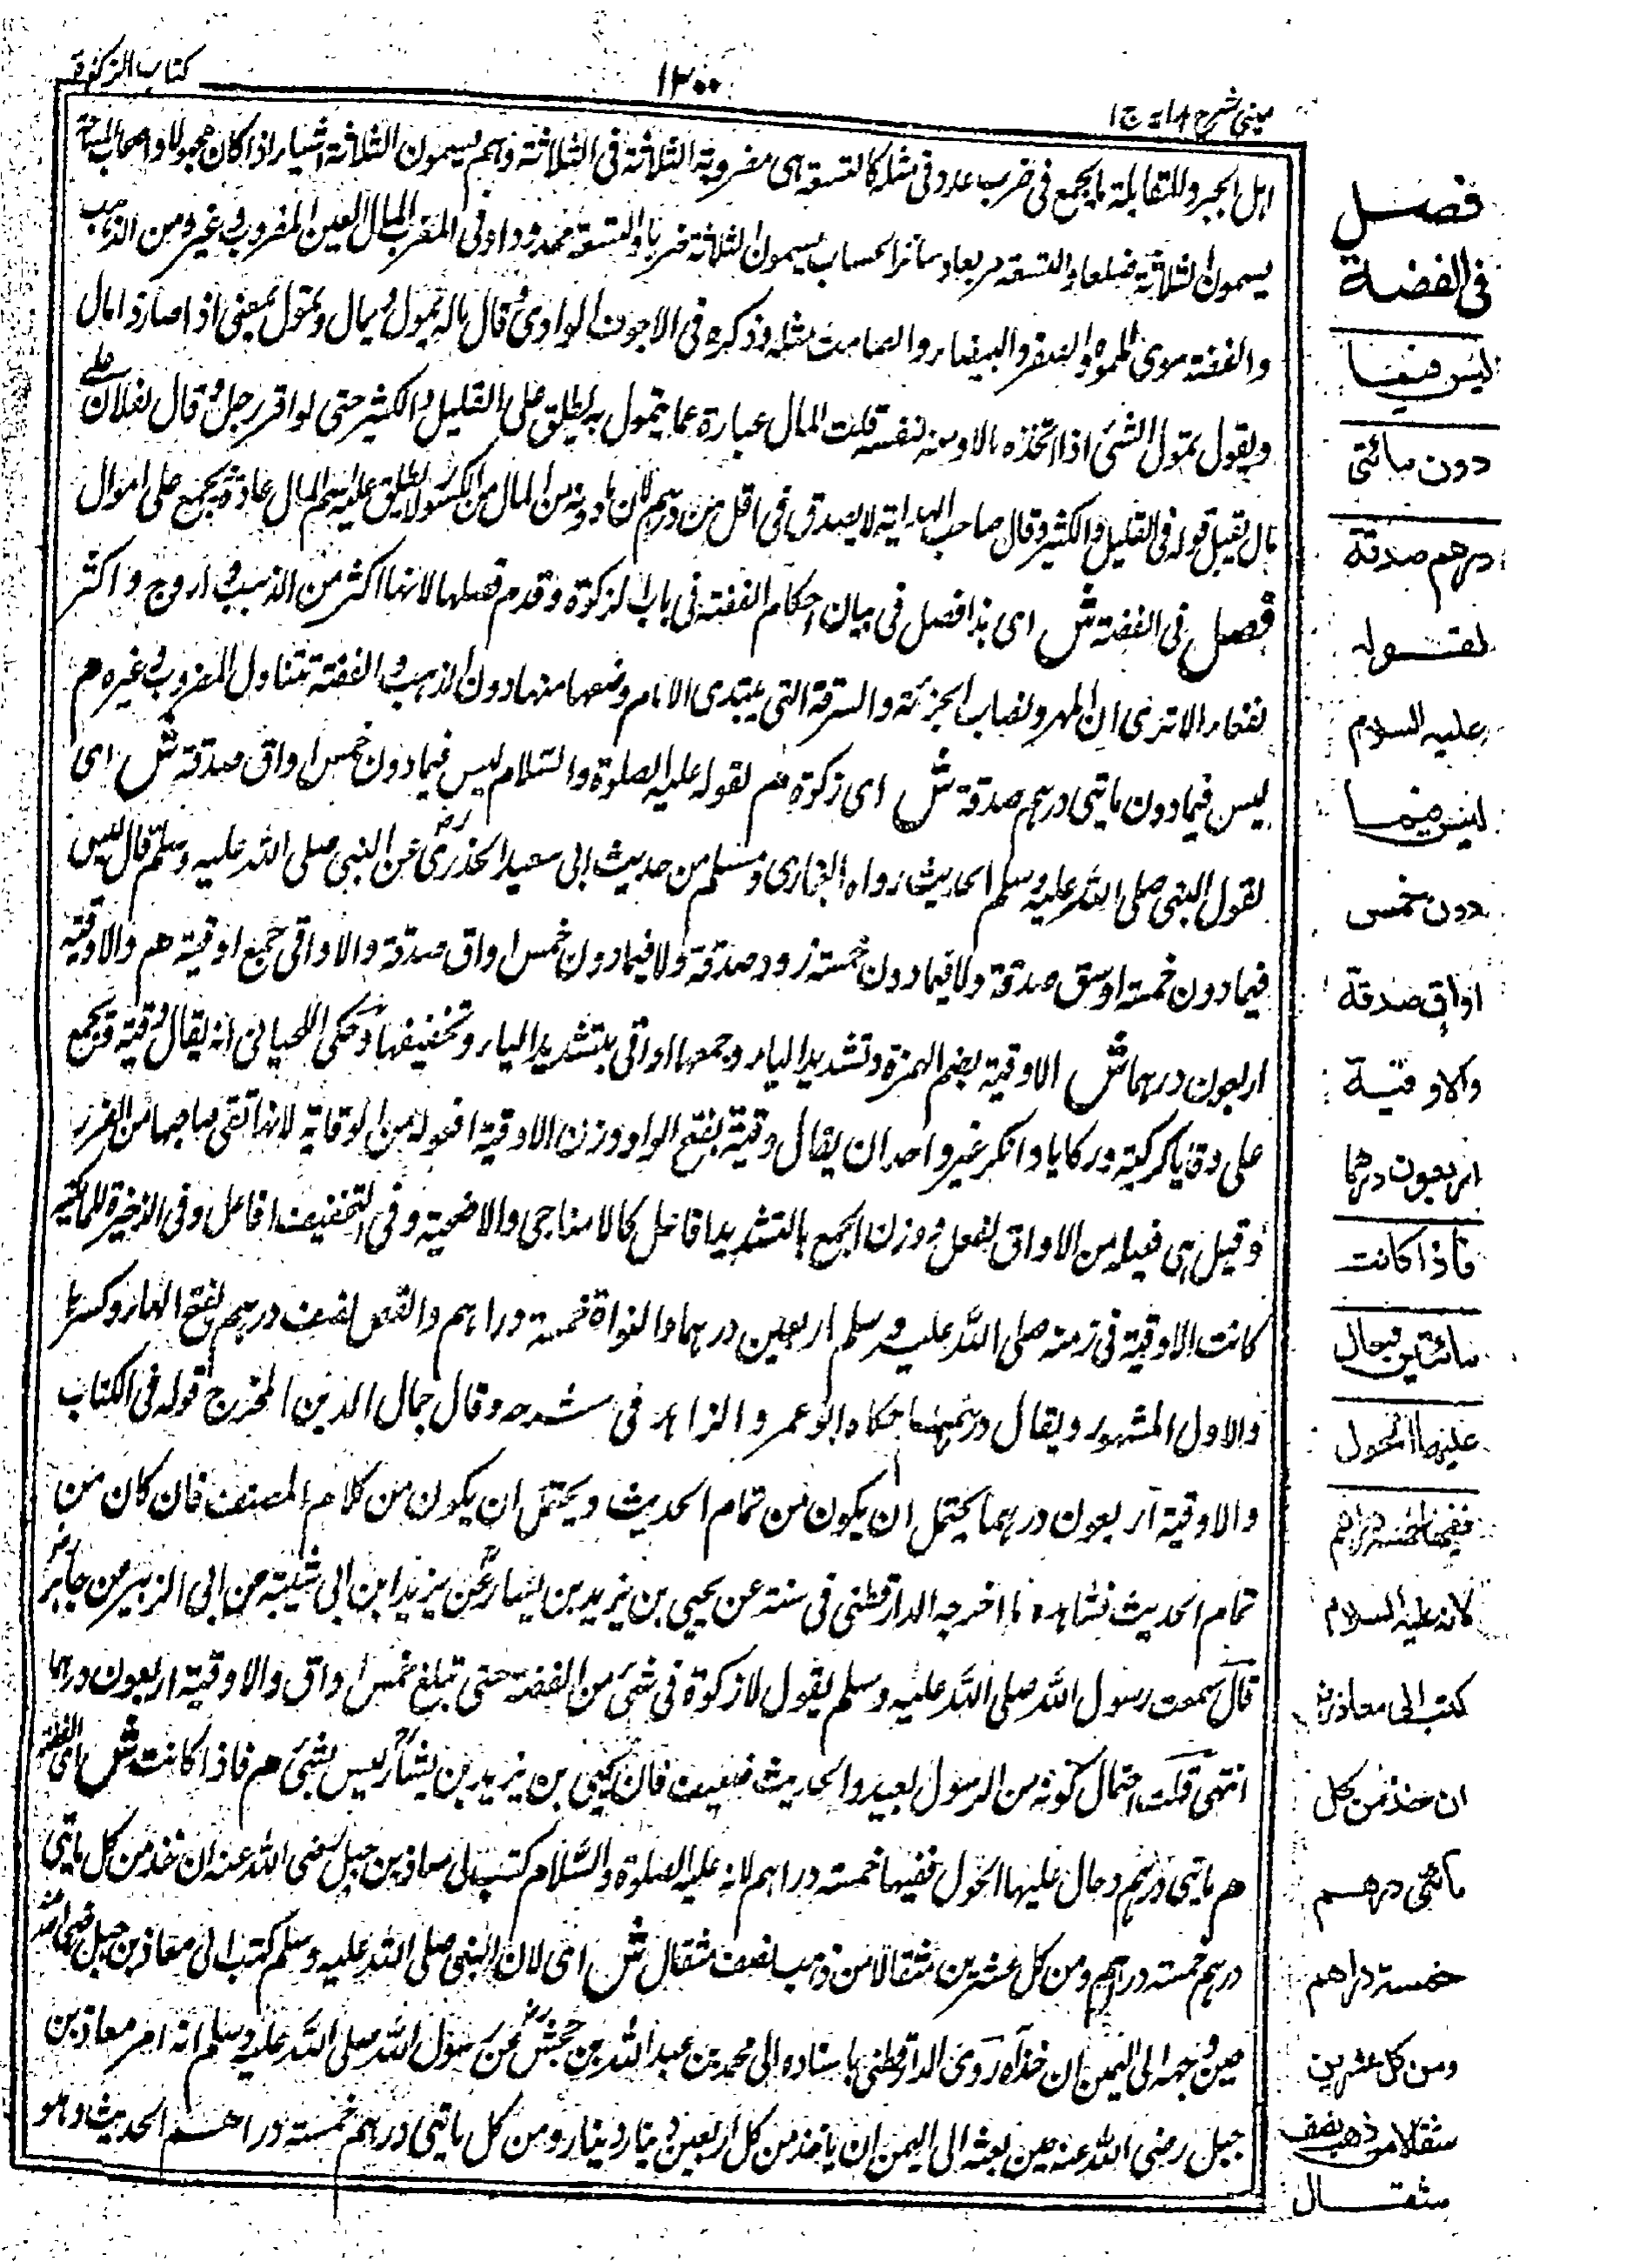 كتاب الزكوة
١٣٠٠
عيني شرح هداية ج ١
اهل الجبر والمقابلة ما يجمع في ضرب عدد في مثله كالتسعة هي مضروبة الثلاثة في الثلاثة وهم يسمون الثلاثة اشياء اذا كان مجهولا واصحاب
يسمون الثلاثة ضلعا والتسعة مربعا وسائر الحساب يسمون الثلاثة ضربا والتسعة محدودا وفي المغرب المال العين المضروب وغيره من الذهب
والفضة سوى المموه والصفر والبيضاء والصامت مثله وذكره في الاجوف الواوي وقال ماله يمول ويمال وتمول بمعنى اذا صار ذا مال
ويقول تمول الشئ اذا اتخذه مالا لنفسه قلت المال عبارة عما يتمول به يطلق على القليل والكثير حتى لو اقر رجل وقال لفلان على
مال يقبل قوله في القليل والكثير وقال صاحب الهداية لا يصدق في اقل من درهم لان ما دونه من المال من الكسور لا يطلق عليه اسم المال عادة ويجمع على اموال
فصل في الفضة ش اى هذا فصل في بيان احكام الفضة في باب الزكوة وقدم فصلها لانها اكثر من الذهب واروج واكثر
نفعا الا ترى ان المهر ونصاب الجزية والسرقة التي يبتدى الامام وضعها منها دون الذهب والفضة تتناول المضروب وغيره م
ليس فيما دون مايتى درهم صدقة ش اى زكوة م لقوله عليه الصلوة والسلام ليس فيما دون خمس اواق صدقة ش اى
لقول النبي صلى الله عليه وسلم الحديث رواه البخاري ومسلم من حديث ابي سعيد الخدري رض عن النبي صلى الله عليه وسلم قال ليس
فيما دون خمسة اوسق صدقة ولا فيما دون خمسة زود صدقة ولا فيما دون خمس اواق صدقة والاواقي جمع اوقية هم والاوقية
اربعون درهما ش الاوقية بضم الهمزة وتشديد الياء وجمعها اواقي بتشديد الياء وتخفيفها وحكى اللحياني انه يقال وقية وتجمع
على وقايا كركية وركايا وانكر غير واحد ان يقال وقية بفتح الواو ووزن الاوقية افعولة من الوقاية لانها تقي صاحبها من الضرر
وقيل هي فعيلة من الاواق لفعل ووزن الجمع بالتشديد افاعل كالاضاحي والاضحية وفي التخفيف افاعل وفي الذخيرة للمالكية
كانت الاوقية في زمنه صلى الله عليه وسلم اربعين درهما والنواة خمسة دراهم والنش نصف درهم بفتح الهاء وكسرها
والاول المشهور ويقال درهما حكاه ابو عمر والزاهد في شرحه وقال جمال الدين المخرج قوله في الكتاب
والاوقية اربعون درهما يحتمل ان يكون من تمام الحديث ويحتمل ان يكون من كلام المصنف فان كان من
تمام الحديث فشاهده ما اخرجه الدارقطني في سننه عن يحيى بن يزيد بن يسار عن يزيد ابن ابي شيبة عن ابي الزبير عن جابر رض
قال سمعت رسول الله صلى الله عليه وسلم يقول لا زكوة في شئ من الفضة حتى تبلغ خمس اواق والاوقية اربعون درهما
انتهى قلت احتمال كونه من الرسول بعيد والحديث ضعيف فان يحيى بن يزيد بن يسار ليس بشئ م فاذا كانت ش اى الفضة
هم مايتى درهم وحال عليها الحول ففيها خمسة دراهم لانه عليه الصلوة والسلام كتب الى معاذ بن جبل رضى الله عنه ان خذ من كل مايتى
درهم خمسة دراهم ومن كل عشرين مثقالا من ذهب نصف مثقال ش اى لان النبي صلى الله عليه وسلم كتب الى معاذ بن جبل رضى الله
حين وجهه الى اليمن ان خذ اه روى الدارقطني باسناده الى محمد بن عبد الله بن جحش رض عن رسول الله صلى الله عليه وسلم انه امر معاذ بن
جبل رضى الله عنه حين بعثه الى اليمن ان ياخذ من كل اربعين دينار دينار ومن كل مايتى درهم خمسة دراهم الحديث وهو
فصل
في الفضة
ليس فيما
دون مائتى
درهم صدقة
لقوله
عليه السلام
ليس فيما
دون خمس
اواق صدقة
والاوقية
اربعون درهما
فاذا كانت
مائتين وحال
عليها الحول
ففيها خمسة دراهم
لانه عليه السلام
كتب الى معاذ رض
ان خذ من كل
مائتى درهم
خمسة دراهم
ومن كل عشرين
مثقالا من ذهب نصف
مثقال